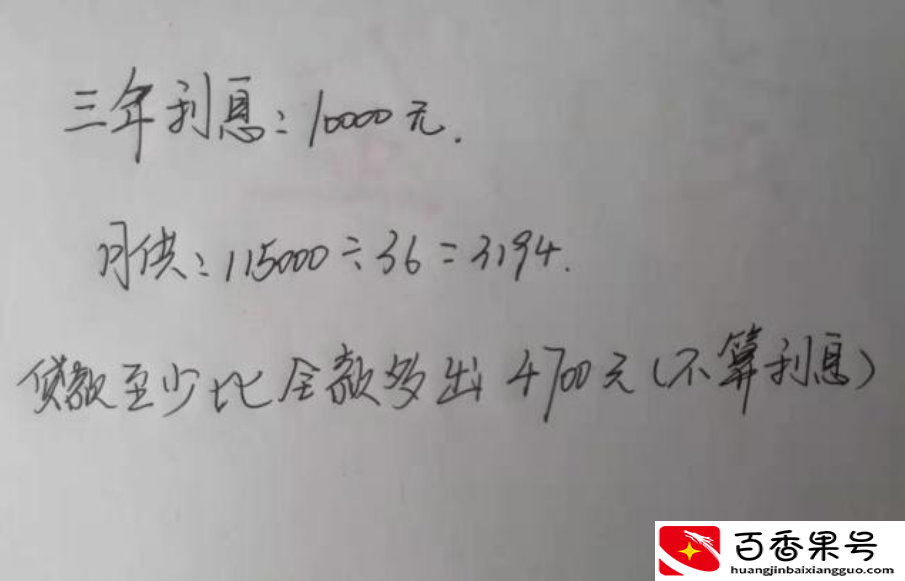 三年利息：10000元.
月供：115000÷36=3194.
贷款至少比全款多出4700元（不算利息）
百香果号
huangjinbaixiangguo.com